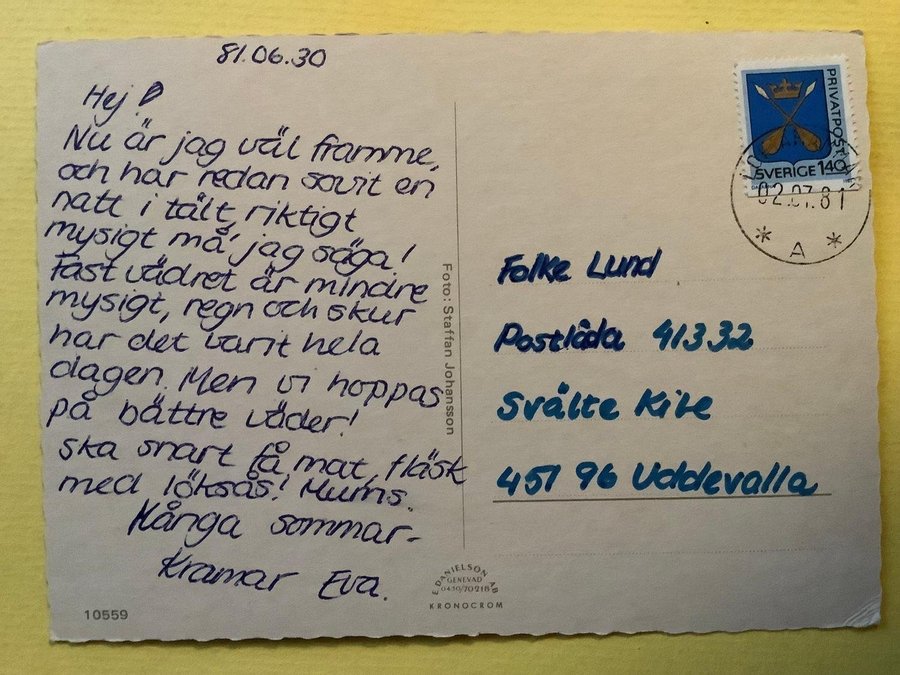 81.06.30
Hej!
Nu är jag väl framme,
och har redan sovit en
natt i tält, riktigt
mysigt må jag säga!
Fast vädret är mindre
mysigt, regn och skur
har det varit hela
dagen. Men vi hoppas
på bättre väder!
Ska snart få mat, fläsk
med löksås! Mums.
Många sommar-
Kramar Eva.
10559
Foto: Staffan Johansson
E. DANIELSON AB
GENEVAD
0430/70218
KRONOCROM
PRIVATPOST
SVERIGE 140
02.07.81
* A *
Folke Lund
Postlåda 41332
Svälte Kile
451 96 Uddevalla